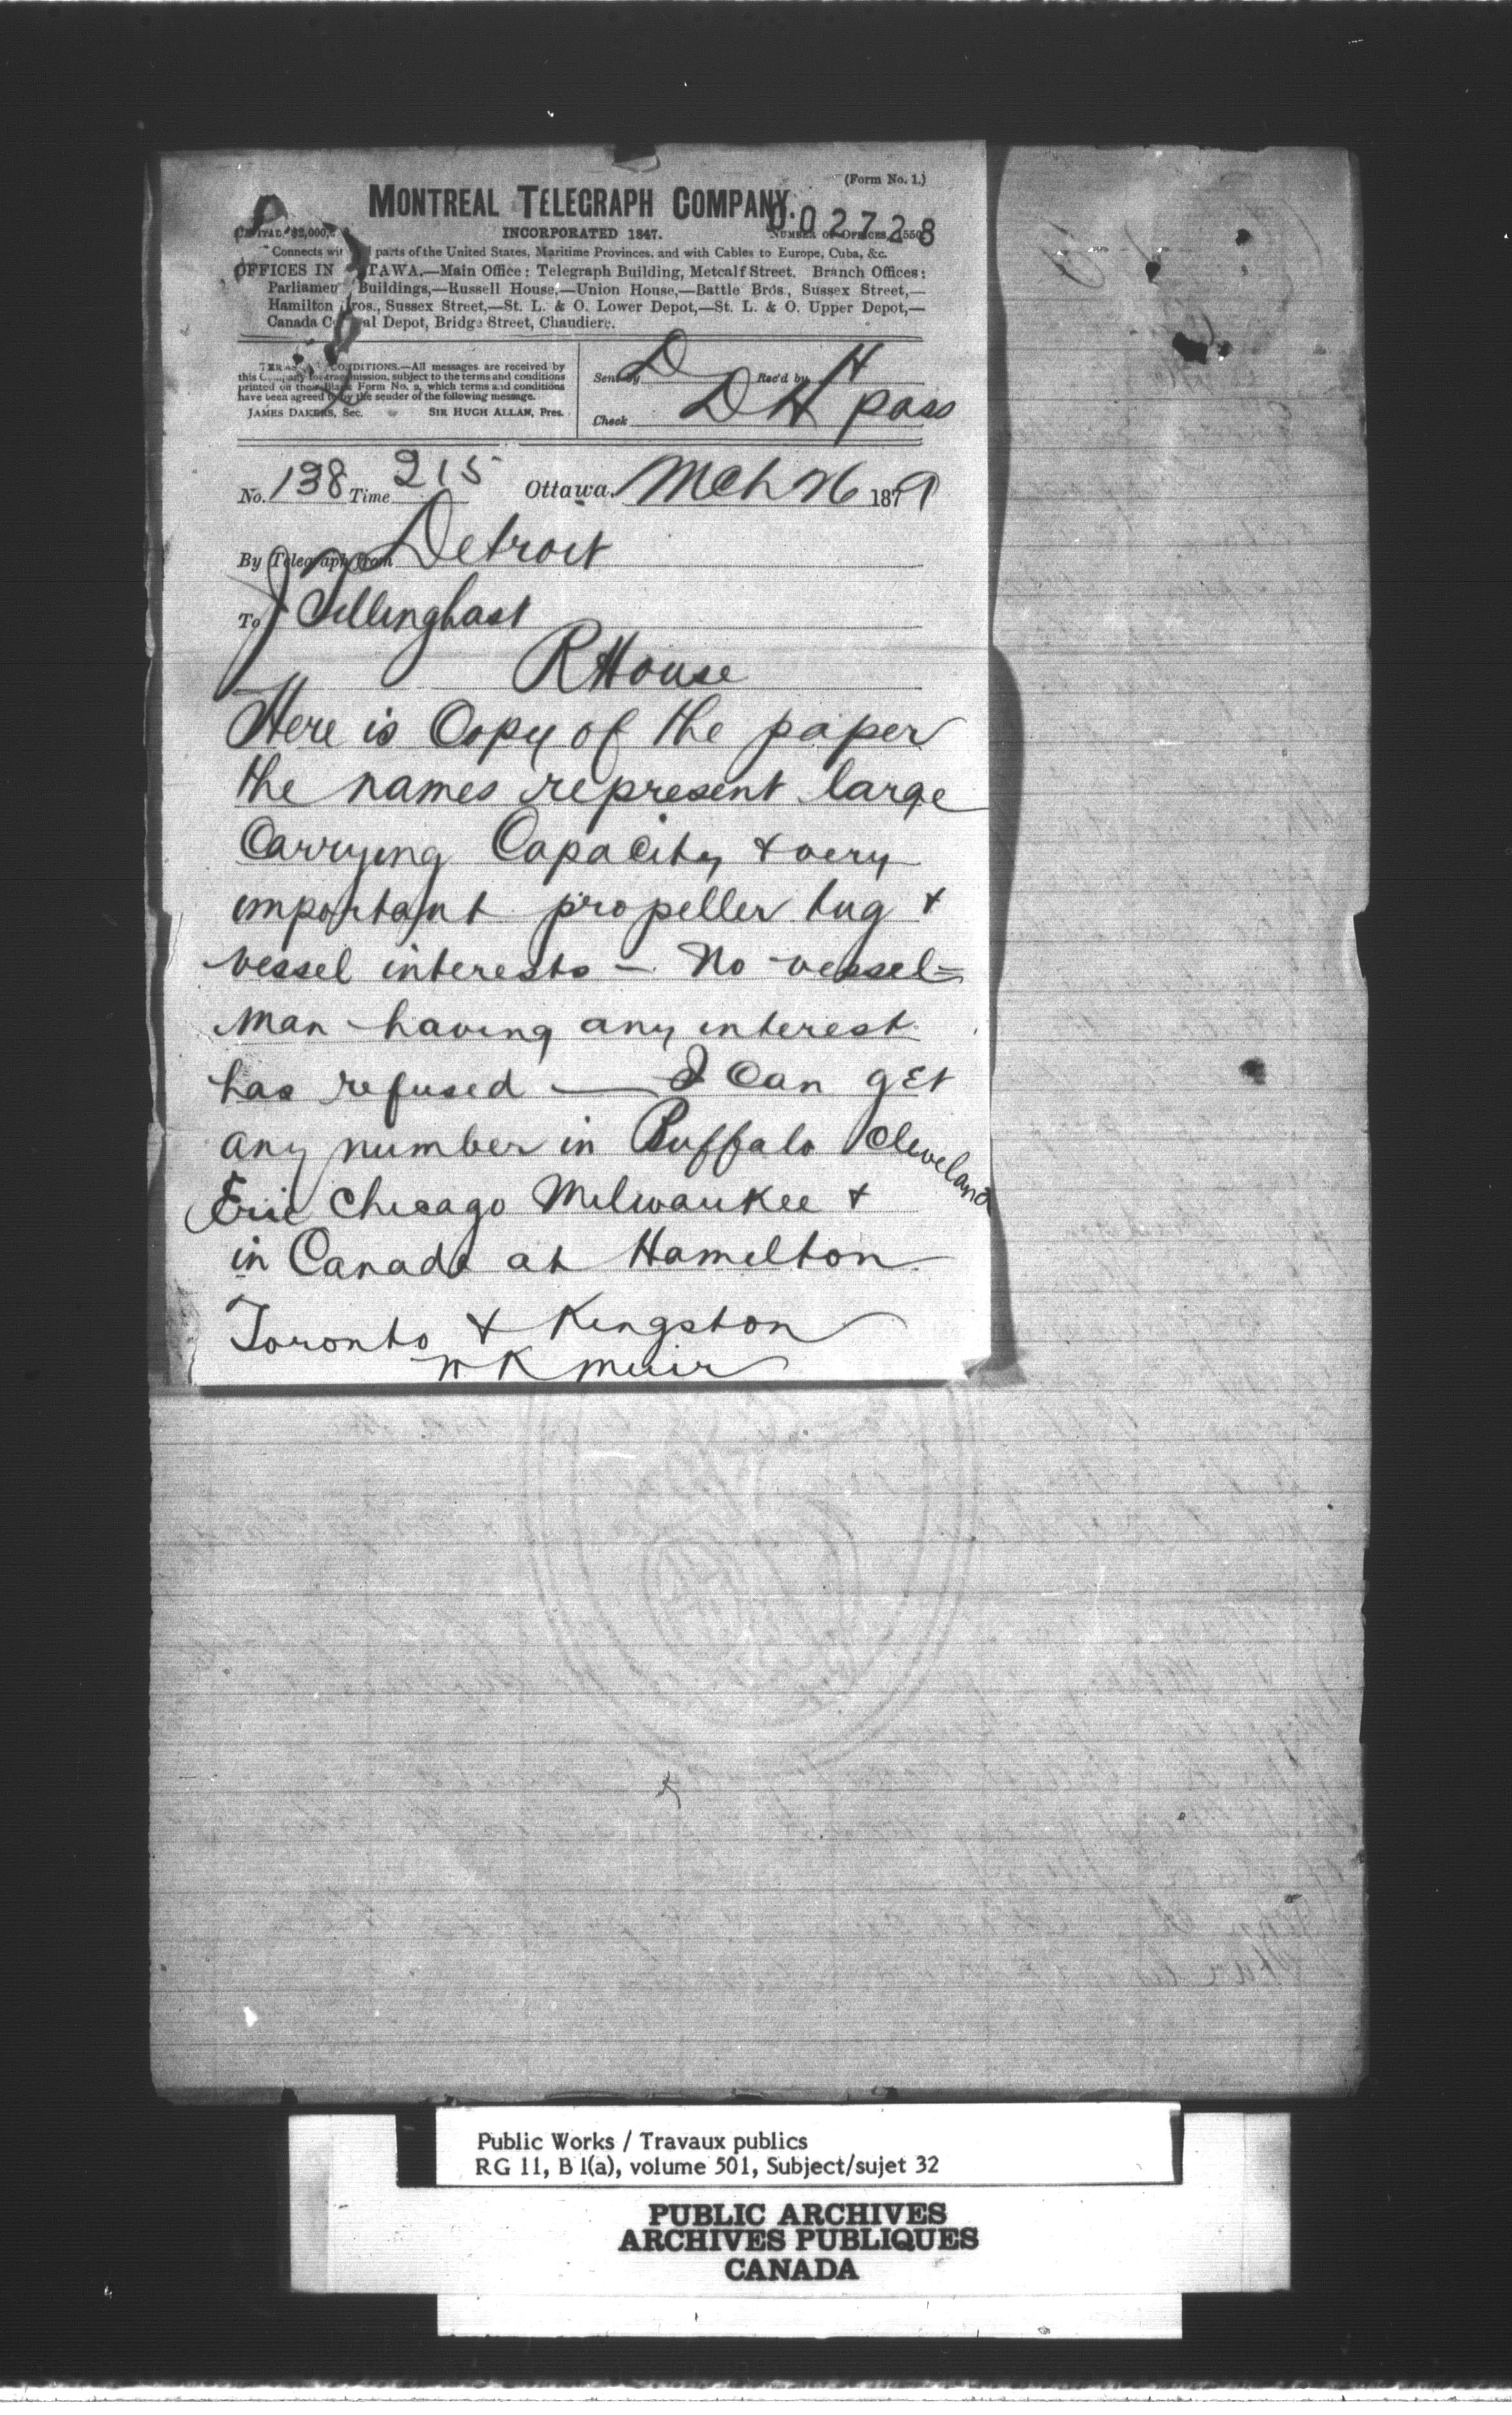 (Form No. 1.)
MONTREAL TELEGRAPH COMPANY.
002728
CAPITAL $2,000,
INCORPORATED 1847.
NUMBER OF OFFICES, 1550
Connects wit parts of the United States, Maritime Provinces, and with Cables to Europe, Cuba, &c.
OFFICES IN TAWA.—Main Office: Telegraph Building, Metcalf Street. Branch Offices:
Parliamen Buildings,—Russell House,—Union House,—Battle Bros., Sussex Street,—
Hamilton Bros., Sussex Street,—St. L. & O. Lower Depot,—St. L. & O. Upper Depot,—
Canada C al Depot, Bridge Street, Chaudiere.
TERMS CONDITIONS.—All messages are received by
this Company for transmission, subject to the terms and conditions
printed on their Blank Form No. 2, which terms and conditions
have been agreed to by the sender of the following message.
JAMES DAKERS, Sec. SIR HUGH ALLAN, Pres.
Sent by D Rec'd by H
Check DH pass
No. 138 Time 215 Ottawa, Mch 26 1879
By Telegraph from Detroit
To J Tillinghast
R House
Here is Copy of the paper
the names represent large
Carrying Capacity & very
important propeller tug &
vessel interests — No vessel=
man having any interest
has refused — I Can get
any number in Buffalo Cleveland
Erie Chicago Milwaukee &
in Canada at Hamilton
Toronto & Kingston
W K Muir
Public Works / Travaux publics
RG 11, B 1(a), volume 501, Subject/sujet 32
PUBLIC ARCHIVES
ARCHIVES PUBLIQUES
CANADA